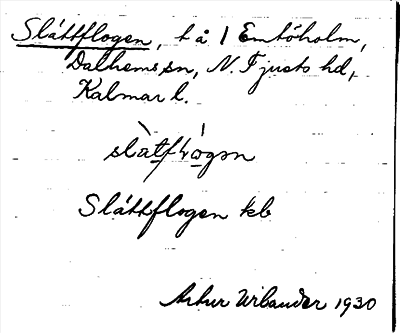 Slåttflogen, t å 1 Emtöholm,
Dalhems sn, N. Tjusts hd,
Kalmar l.
Slåttflogen kb
Artur Urbander 1930